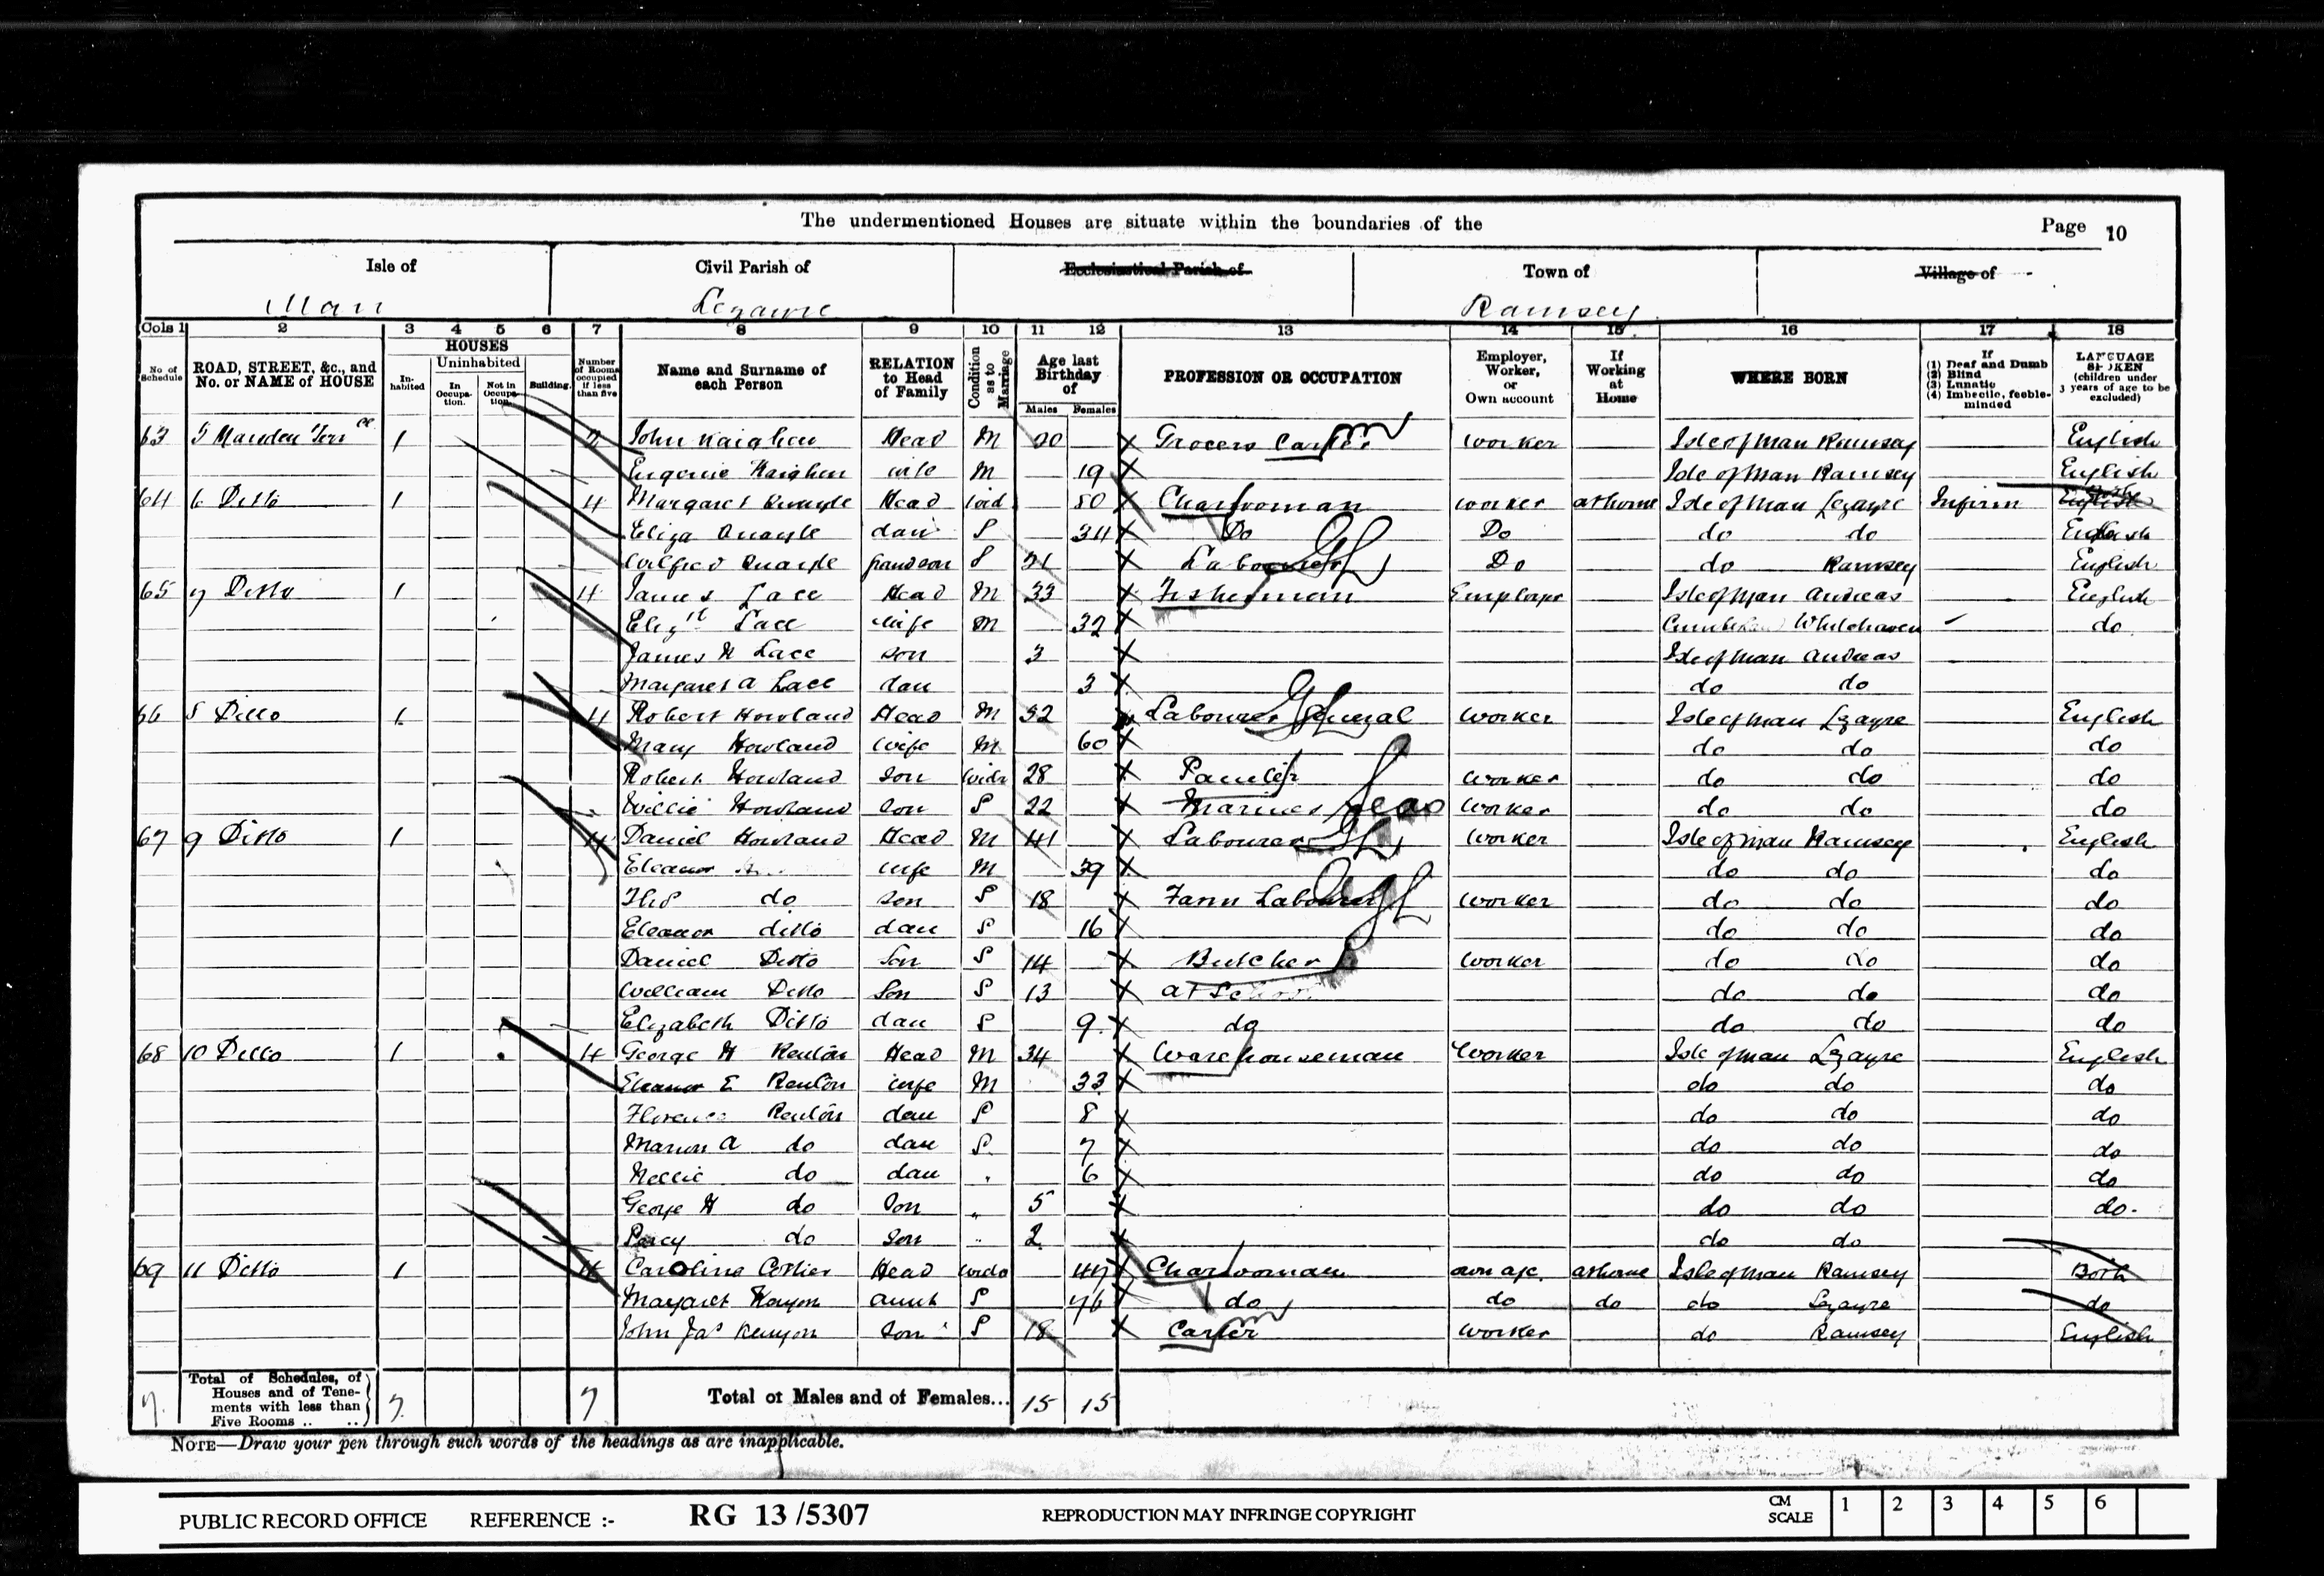 The undermentioned Houses are situate within the boundaries of the
Page 10
Isle of Civil Parish of Ecclesiastical Parish of Town of Village of
Man Lezayre Ramsey
Cols 1 2 3 4 5 6 7 8 9 10 11 12 13 14 15 16 17 18
No. of Schedule ROAD, STREET, &c., and No. or NAME of HOUSE HOUSES In-habited Uninhabited In Occupa-tion. Not in Occupa-tion. Building. Number of Rooms occupied if less than five Name and Surname of each Person RELATION to Head of Family Condition as to Marriage Age last Birthday of Males Females PROFESSION OR OCCUPATION Employer, Worker, or Own account If Working at Home WHERE BORN If (1) Deaf and Dumb (2) Blind (3) Lunatic (4) Imbecile, feeble-minded LANGUAGE SPOKEN (children under 3 years of age to be excluded)
63 5 Terrce 1 John Kaighen Head M 20 Grocers Carter worker Isle of Man Ramsey English
Eugenie Kaighen wife M 19 Isle of Man Ramsey English
64 6 Ditto 1 4 Margaret Quayle Head Wid 80 Charwoman worker at home Isle of Man Lezayre Infirm
Eliza Quayle dau S 34 Do Do do do English
Wilfred Quayle grandson S 21 Labourer GL Do do Ramsey English
65 7 Ditto 1 4 James Lace Head M 33 Fisherman Employer Isle of Man Andreas English
Elizth Lace wife M 32 Whitehaven do
James H Lace son 3 Isle of Man Andreas
Margaret A Lace dau 3 do do
66 8 Ditto 1 4 Robert Howland Head M 52 Labourer General GL worker Isle of Man Lezayre English
Mary Howland wife M 60 do do do
Robert Howland son Widr 28 Painter worker do do do
Willie Howland son S 22 worker do do do
67 9 Ditto 1 4 Daniel Howland Head M 41 Labourer GL worker Isle of Man Ramsey English
Eleanor wife M 39 do do do
Thos do son S 18 Farm Labourer GL worker do do do
Eleanor ditto dau S 16 do do do
Daniel Ditto Son S 14 Butcher worker do do do
William Ditto Son S 13 at School do do do
Elizabeth Ditto dau S 9 do do do do
68 10 Ditto 1 4 George H Renton Head M 34 Warehouseman Worker Isle of Man Lezayre English
Eleanor E Renton wife M 33 do do do
Florence Renton dau S 8 do do do
Marion A do dau S 7 do do do
Nellie do dau 6 do do do
George H do Son " 5 do do do
Percy do Son " 2 do do
69 11 Ditto 1 4 Caroline Head Wido 47 Charwoman own ac. at home Isle of Man Ramsey Both
Margaret Kenyon aunt S 76 do do do do Lezayre do
John Jas Kenyon Son S 18 Carter worker do Ramsey English
7 Total of Schedules, of Houses and of Tene-ments with less than Five Rooms .. .. 7 7 Total of Males and of Females... 15 15
NOTE—Draw your pen through such words of the headings as are inapplicable.
PUBLIC RECORD OFFICE REFERENCE :- RG 13 /5307 REPRODUCTION MAY INFRINGE COPYRIGHT CM SCALE 1 2 3 4 5 6